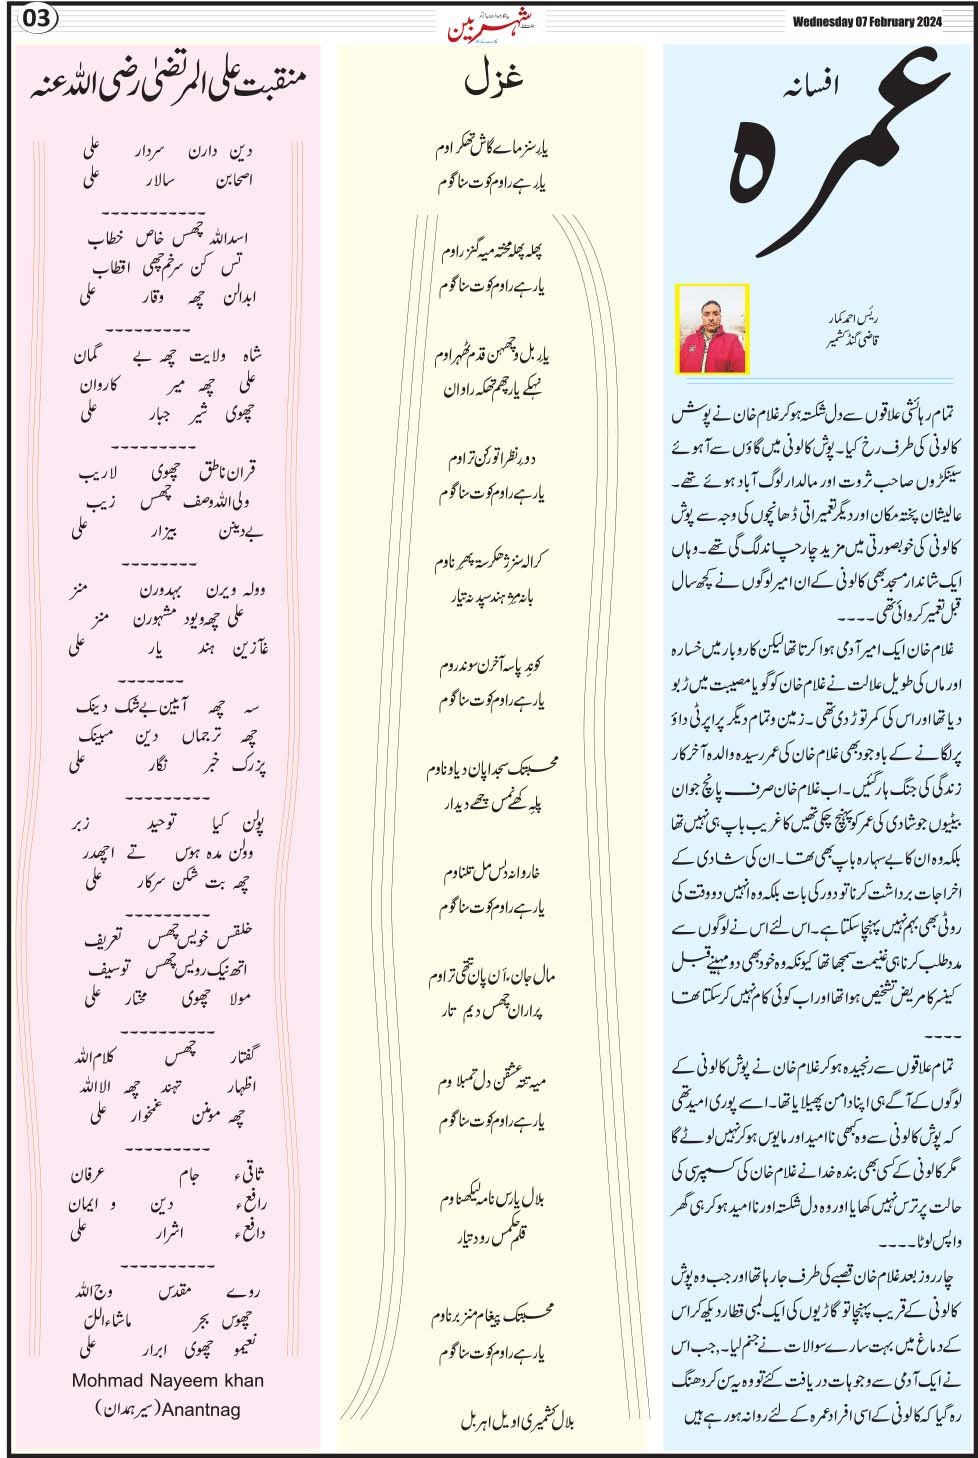 03
شہربین
Wednesday 07 February 2024
عمرہ
افسانہ
رئیس احمد کمار
قاضی گنڈ کشمیر
تمام رہائشی علاقوں سے دل شکستہ ہوکر غلام خان نے پوش
کالونی کی طرف رخ کیا۔ پوش کالونی میں گاؤں سے آہوئے
سینکڑوں صاحب ثروت اور مالدار لوگ آباد ہوئے تھے۔
عالیشان پختہ مکان اور دیگر تعمیراتی ڈھانچوں کی وجہ سے پوش
کالونی کی خوبصورتی میں مزید چار چاند لگ گی تھے۔ وہاں
ایک شاندار مسجد بھی کالونی کے ان امیر لوگوں نے کچھ سال
قبل تعمیر کروائی تھی۔۔۔۔
غلام خان ایک امیر آدمی ہوا کرتا تھا لیکن کاروبار میں خسارہ
اور ماں کی طویل علالت نے غلام خان کو گویا مصیبت میں ڑبو
دیا تھا اور اس کی کمر توڑ دی تھی۔ زمین و تمام دیگر پراپرٹی داؤ
پر لگانے کے باوجود بھی غلام خان کی عمر رسیدہ والدہ آخرکار
زندگی کی جنگ ہار گئیں۔ اب غلام خان صرف پانچ جوان
بیٹیوں جو شادی کی عمر کو پہنچ چکی تھیں کا غریب باپ ہی نہیں تھا
بلکہ وہ ان کا بے سہارہ باپ بھی تھا۔ ان کی شادی کے
اخراجات برداشت کرنا تو دور کی بات بلکہ وہ انہیں دو وقت کی
روٹی بھی بہم نہیں پہنچا سکتا ہے۔ اس لئے اس نے لوگوں سے
مدد طلب کرنا ہی غنیمت سمجھا تھا کیونکہ وہ خود بھی دو مہینے قبل
کینسر کا مریض تشخیص ہوا تھا اور اب کوئی کام نہیں کر سکتا تھا
۔۔۔۔
تمام علاقوں سے رنجیدہ ہوکر غلام خان نے پوش کالونی کے
لوگوں کے آگے ہی اپنا دامن پھیلایا تھا۔ اسے پوری امید تھی
کہ پوش کالونی سے وہ کبھی ناامید اور مایوس ہوکر نہیں لوٹے گا
مگر کالونی کے کسی بھی بندہ خدا نے غلام خان کی کسمپرسی کی
حالت پر ترس نہیں کھایا اور وہ دل شکستہ اور ناامید ہوکر ہی گھر
واپس لوٹا۔۔۔۔
چار روز بعد غلام خان قصبے کی طرف جارہا تھا اور جب وہ پوش
کالونی کے قریب پہنچا تو گاڑیوں کی ایک لمبی قطار دیکھ کر اس
کے دماغ میں بہت سارے سوالات نے جنم لیا۔ جب اس
نے ایک آدمی سے وجوہات دریافت کئے تو وہ یہ سن کر دھنگ
رہ گیا کہ کالونی کے اسی افراد عمرہ کے لئے روانہ ہورہے ہیں
غزل
یار سنز مائے گاش تھکراوم
یار ہے راوم کوت سنا گوم
پھلہ پھلہ مختہ میہ گنزراوم
یار ہے راوم کوت سنا گوم
یار بل وچھہن قدم ٹھہراوم
نہکے یار چھم تھکہ راوان
دور نظرا تور کن تراوم
یار ہے راوم کوت سنا گوم
کرالہ سنز ژھکر ستہ پھرناوم
بانہ مژ ہند سپدنہ تیار
کوند پاسہ آخرن سوندروم
یار ہے راوم کوت سنا گوم
محبتک سجدا پان دیاوناوم
پلہ کھے نمس چھے دیدار
خاروانہ دلس مل تلناوم
یار ہے راوم کوت سنا گوم
مال جان، أن پان تتھی تراوم
پراران چھس دیم تار
میہ تتہ عشقن دل تمبلاوم
یار ہے راوم کوت سنا گوم
بلال یارس نامہ لیکھناوم
قلم حکمس رود تیار
محبتک پیغام منز برناوم
یار ہے راوم کوت سنا گوم
بلال کشمیری اویل اہربل
منقبت علی المرتضیٰ رضی اللہ عنہ
دین دارن سردار علی
اصحابن سالار علی
-----------
اسداللہ چھس خاص خطاب
تس کن سرخم چھی اقطاب
ابدالن چھہ وقار علی
---------
شاہ ولایت چھہ بے گمان
علی چھہ میر کاروان
چھوی شیر جبار علی
---------
قران ناطق چھوی لاریب
ولی اللہ وصف چھس زیب
بے دینن بیزار علی
--------
وولہ ویرن بہدورن منز
علی چھہ ویود مشہورن منز
غآزین ہند یار علی
-------
سہ چھہ آیین بے شک دینک
چھہ ترجماں دین مبینک
پزرک خبر نگار علی
---------
پوِلن کیا توحید زبر
وولن مدہ ہوس تے اچھدر
چھہ بت شکن سرکار علی
---------
خلقس خویس چھس تعریف
اتھ نیک رویس چھس توسیف
مولا چھوی مختار علی
----------
گفتار چھس کلام اللہ
اظہار تہند چھہ الا اللہ
چھہ مومنن غمخوار علی
---------
ثاقیء جام عرفان
رافعء دین و ایمان
دافعء اشرار علی
----------
روے مقدس وج اللہ
چھوس بجر ماشاءاللن
نعیمو چھوی ابرار علی
Mohmad Nayeem khan
Anantnag(سیر ہمدان)